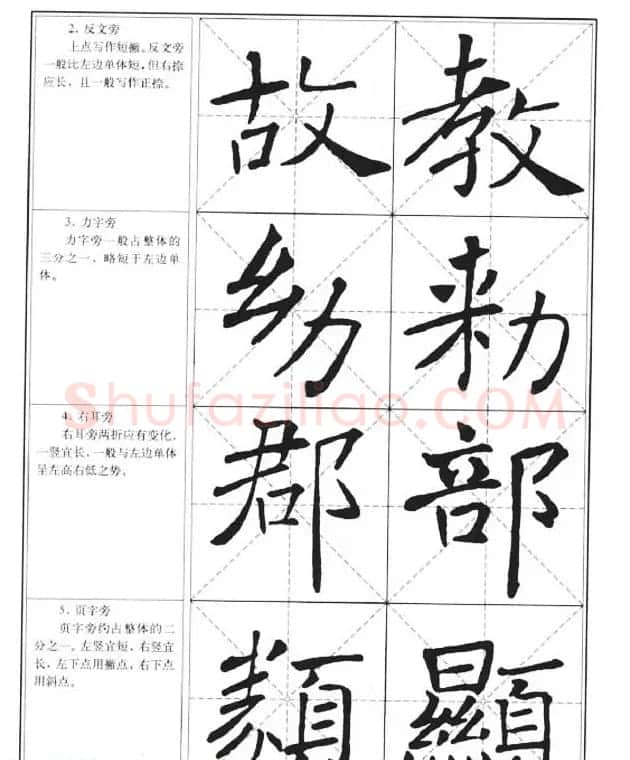 2. 反文旁
上点写作短撇。反文旁
一般比左边单体短，但右捺
应长，且一般写作正捺。
故 教
3. 力字旁
力字旁一般占整体的
三分之一，略短于左边单
体。
幼 勑
4. 右耳旁
右耳旁两折应有变化，
一竖宜长，一般与左边单体
呈左高右低之势。
郡 部
5. 页字旁
页字旁约占整体的二
分之一。左竖宜短，右竖宜
长，左下点用撇点，右下点
用斜点。
類 顯
Shufaziliao.COM